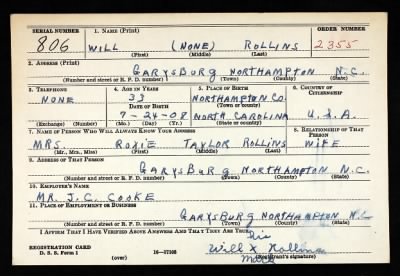 SERIAL NUMBER 1. NAME (Print) ORDER NUMBER
806 WILL (NONE) ROLLINS 2355
(First) (Middle) (Last)
2. ADDRESS (Print)
GARYSBURG NORTHAMPTON N.C.
(Number and street or R. F. D. number) (Town) (County) (State)
3. TELEPHONE 4. AGE IN YEARS 5. PLACE OF BIRTH 6. COUNTRY OF CITIZENSHIP
NONE 33 NORTHAMPTON CO.
DATE OF BIRTH (Town or county)
7-24-08 NORTH CAROLINA U.S.A
(Exchange) (Number) (Mo.) (Day) (Yr.) (State or country)
7. NAME OF PERSON WHO WILL ALWAYS KNOW YOUR ADDRESS 8. RELATIONSHIP OF THAT PERSON
MRS. ROXIE TAYLOR ROLLINS WIFE
(Mr., Mrs., Miss) (First) (Middle) (Last)
9. ADDRESS OF THAT PERSON
GARYSBURG NORTHAMPTON N.C.
(Number and street or R. F. D. number) (Town) (County) (State)
10. EMPLOYER'S NAME
MR. J.C. COOKE
11. PLACE OF EMPLOYMENT OR BUSINESS
GARYSBURG NORTHAMPTON N.C
(Number and street or R. F. D. number) (Town) (County) (State)
I AFFIRM THAT I HAVE VERIFIED ABOVE ANSWERS AND THAT THEY ARE TRUE.
his
REGISTRATION CARD Will X Rollins
D. S. S. Form 1 (over) mark (Registrant's signature)